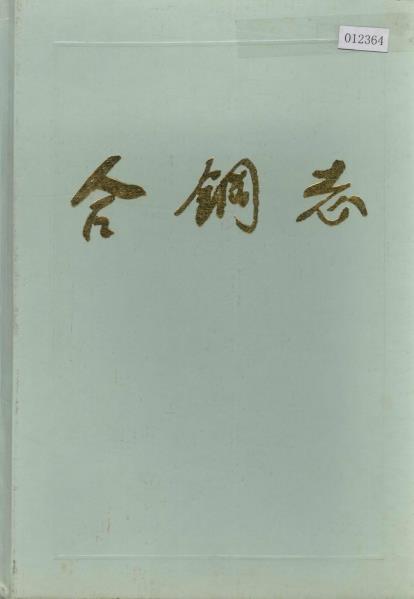 012364
合钢志